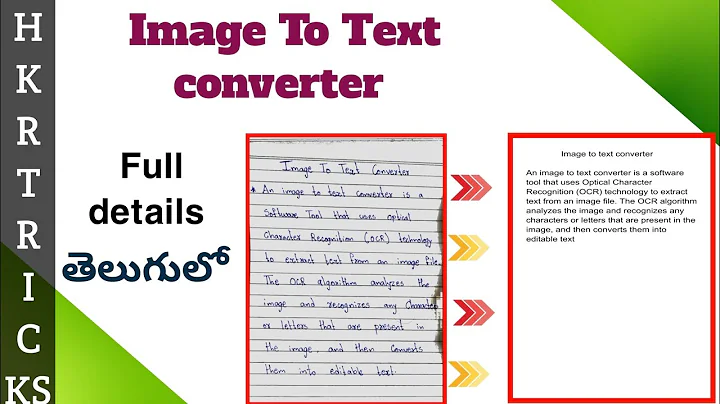 HKRTRICKS
Image To Text
converter
Full
details
తెలుగులో
Image To Text Converter
* An image to text converter is a
Software Tool that uses optical
Character Recognition (OCR) technology
to extract text from an image file.
The OCR algorithm analyzes the
image and recognizes any Character
or letters that are present in
the image, and then converts
them into editable text.
Image to text converter
An image to text converter is a software
tool that uses Optical Character
Recognition (OCR) technology to extract
text from an image file. The OCR algorithm
analyzes the image and recognizes any
characters or letters that are present in the
image, and then converts them into
editable text